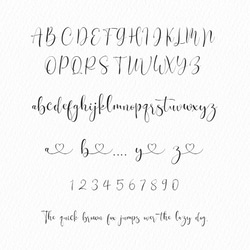 ABCDEFGHIJKLMN
OPQRSTUVWXYZ
abcdefghijklmnopqrstuvwxyz
a b.... y z
1 2 3 4 5 6 7 8 9 0
The quick brown fox jumps over the lazy dog.